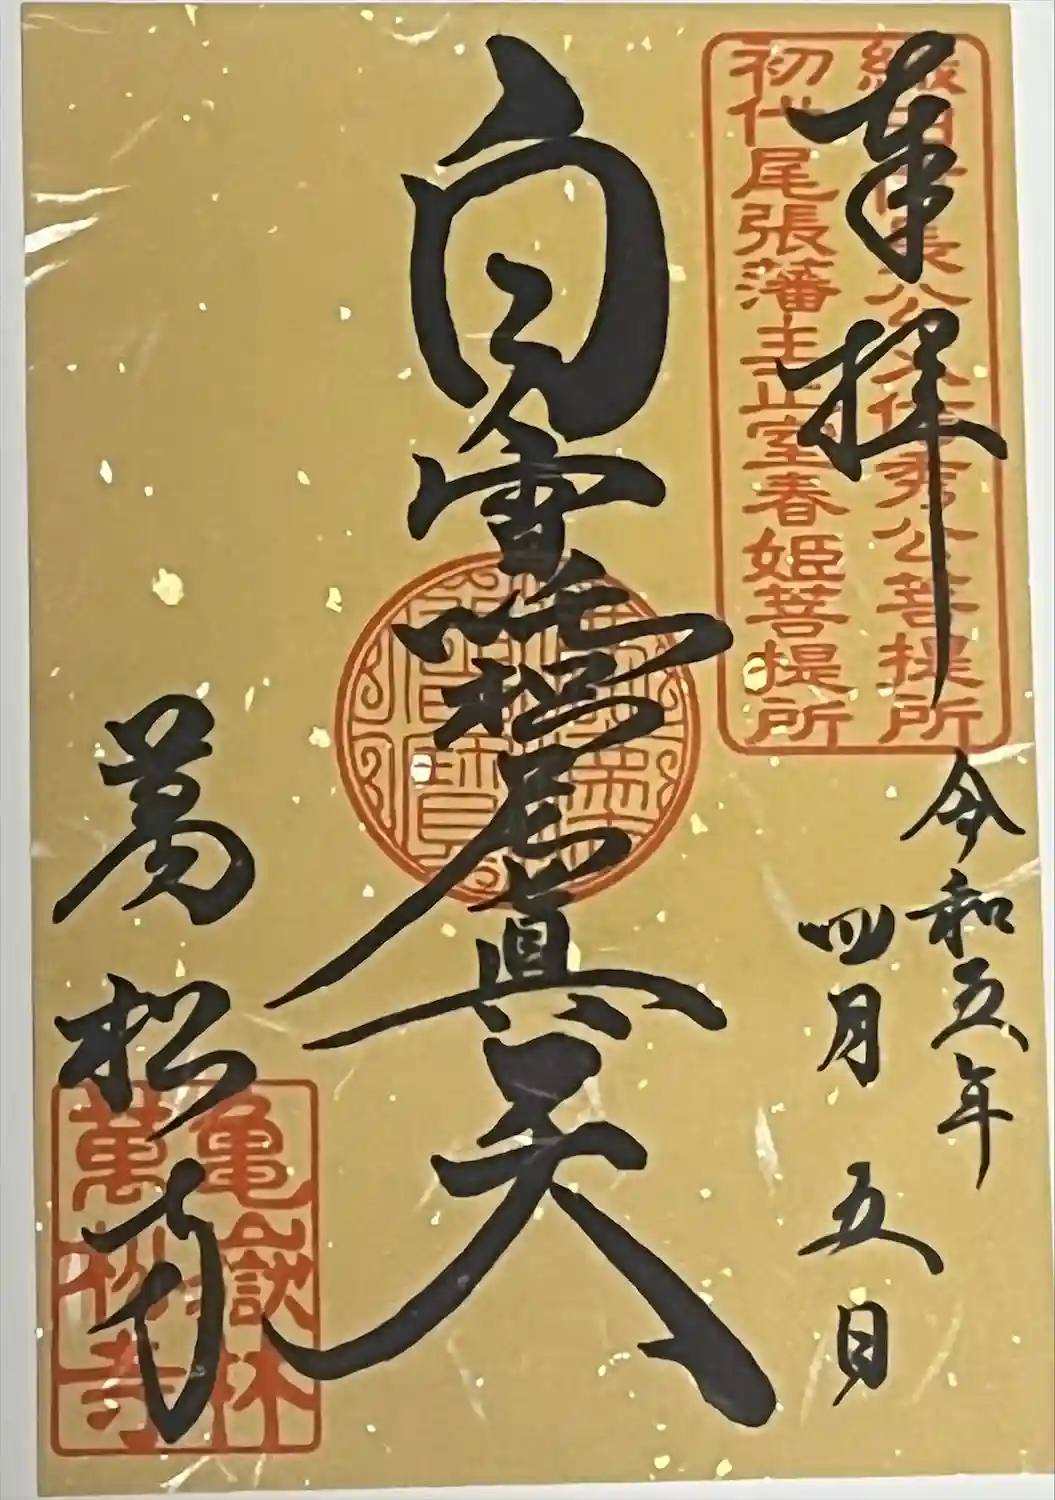 奉拝
織田信長公父信秀公菩提所
初代尾張藩主正室春姫菩提所
令和五年
四月五日
白雪稲荷真天
萬松寺
亀嶽林
萬松寺